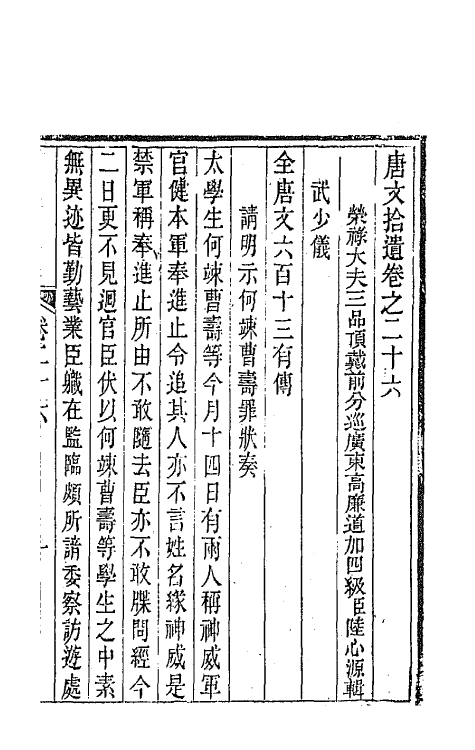 唐文拾遺卷之二十六
榮祿大夫三品頂戴前分巡廣東高廉道加四級臣陸心源輯
武少儀
全唐文六百十三有傳
請明示何竦曹壽罪狀奏
太學生何竦曹壽等今月十四日有兩人稱神威軍
官健本軍奉進止令追其人亦不言姓名緣神威是
禁軍稱奉進止所由不敢隨去臣亦不敢牒問經今
二日更不見迴官臣伏以何竦曹壽等學生之中素
無異迹皆勤藝業臣職在監臨頗所諳委察訪遊處
卷二十六 一